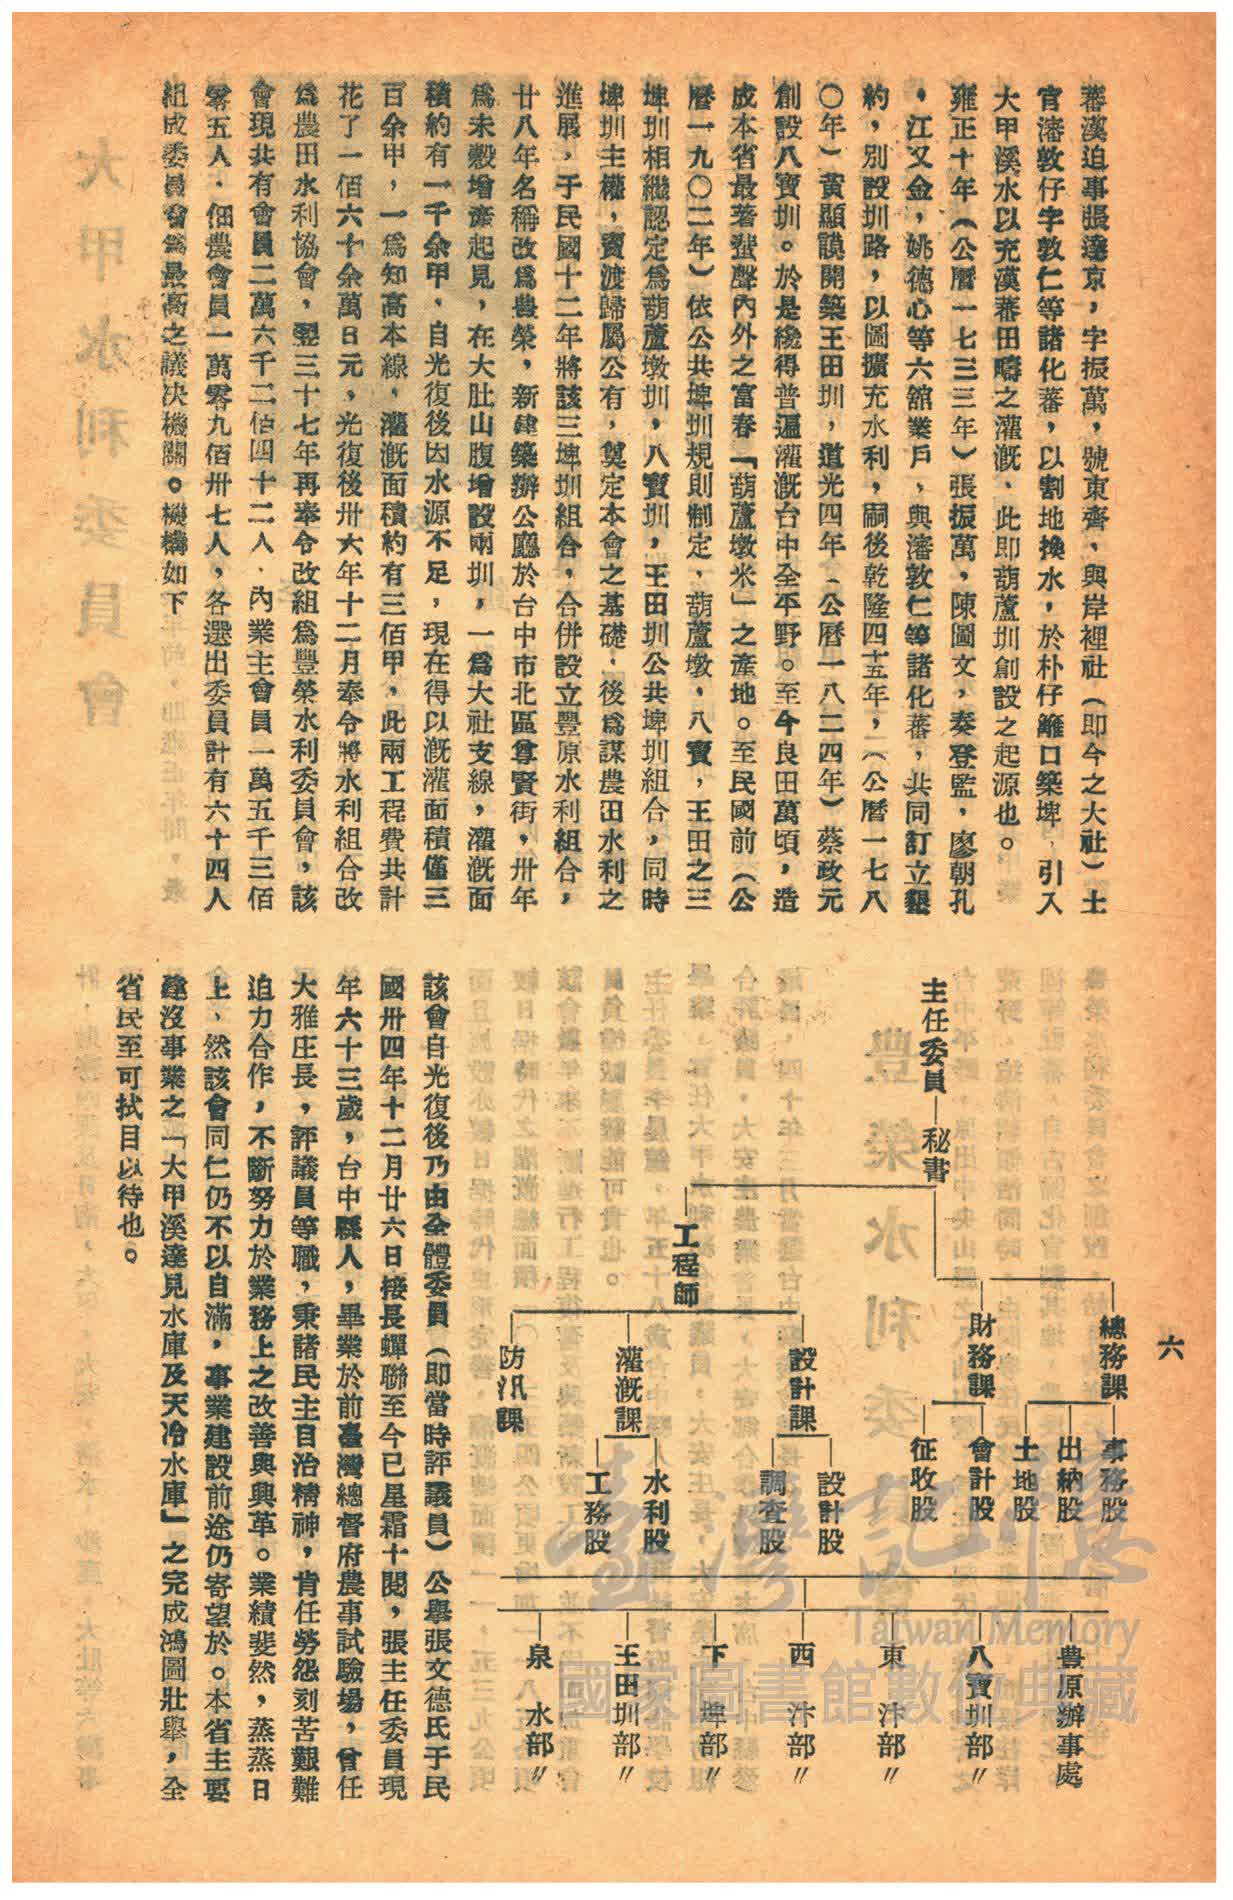 蕃漢迫事張達京，字振萬，號東齋、與岸裡社（即今之大社）土
官潘敦仔字敦仁等諸化蕃，以割地換水，於朴仔籬口築埤，引入
大甲溪水以充漢蕃田疇之灌漑、此即葫蘆圳創設之起源也。
雍正十年（公曆一七三三年）張振萬，陳圖文，秦登監，廖朝孔
，江又金，姚德心等六舘業戶、與潘敦仁等諸化蕃，共同訂立墾
約，別設圳路，以圖擴充水利，嗣後乾隆四十五年，（公曆一七八
〇年）黃顯謨開築王田圳，道光四年（公曆一八二四年）蔡政元
創設八寶圳。於是纔得普遍灌漑台中全平野。至今良田萬頃，造
成本省最著蜚聲內外之富春「葫蘆墩米」之產地。至民國前（公
曆一九〇二年）依公共埤圳規則制定，葫蘆墩，八寶，王田之三
埤圳相繼認定爲葫蘆墩圳，八寶圳，王田圳公共埤圳組合，同時
埤圳主權，賣渡歸屬公有，奠定本會之基礎．後爲謀農田水利之
進展，于民國十二年將該三埤圳組合，合併設立豐原水利組合，
廿八年名稱改爲豊榮，新建築辦公廳於台中市北區尊賢街，卅年
爲未穀增產起見，在大肚山腹增設兩圳，一爲大社支線，灌漑面
積約有一千余甲、自光復後因水源不足，現在得以漑灌面積僅三
百余甲，一爲知高本線，灌漑面積約有三佰甲，此兩工程費共計
花了一佰六十余萬日元，光復後卅六年十二月奉令將水利組合改
爲農田水利協會，翌三十七年再奉令改組爲豐榮水利委員會，該
會現共有會員二萬六千二佰四十二人．內業主會員一萬五千三佰
零五人．佃農會員一萬零九佰卅七人，各選出委員計有六十四人
組成委員會爲最高之議决機關。機構如下
六
主任委員—秘書
工程師
總務課
財務課
設計課
灌漑課
防汛課
事務股
出納股
土地股
會計股
征收股
設計股
調查股
水利股
工務股
豊原辦事處
八寶圳部〃
東　汴部〃
西　汴部〃
下　埤部〃
王田圳部〃
泉　水部〃
該會自光復後乃由全體委員（即當時評議員）公舉張文德氏于民
國卅四年十二月廿六日接長蟬聯至今已星霜十閱，張主任委員現
年六十三歲，台中縣人，畢業於前臺灣總督府農事試驗場，曾任
大雅庄長，評議員等職，秉諸民主自治精神，肯任勞怨刻苦艱難
迫力合作，不斷努力於業務上之改善與興革。業績斐然，蒸蒸日
上、然該會同仁仍不以自滿，事業建設前途仍寄望於。本省主要
建沒事業之「大甲溪達見水庫及天冷水庫」之完成鴻圖壯舉，全
省民至可拭目以待也。
臺灣記憶
Taiwan Memory
國家圖書館數位典藏